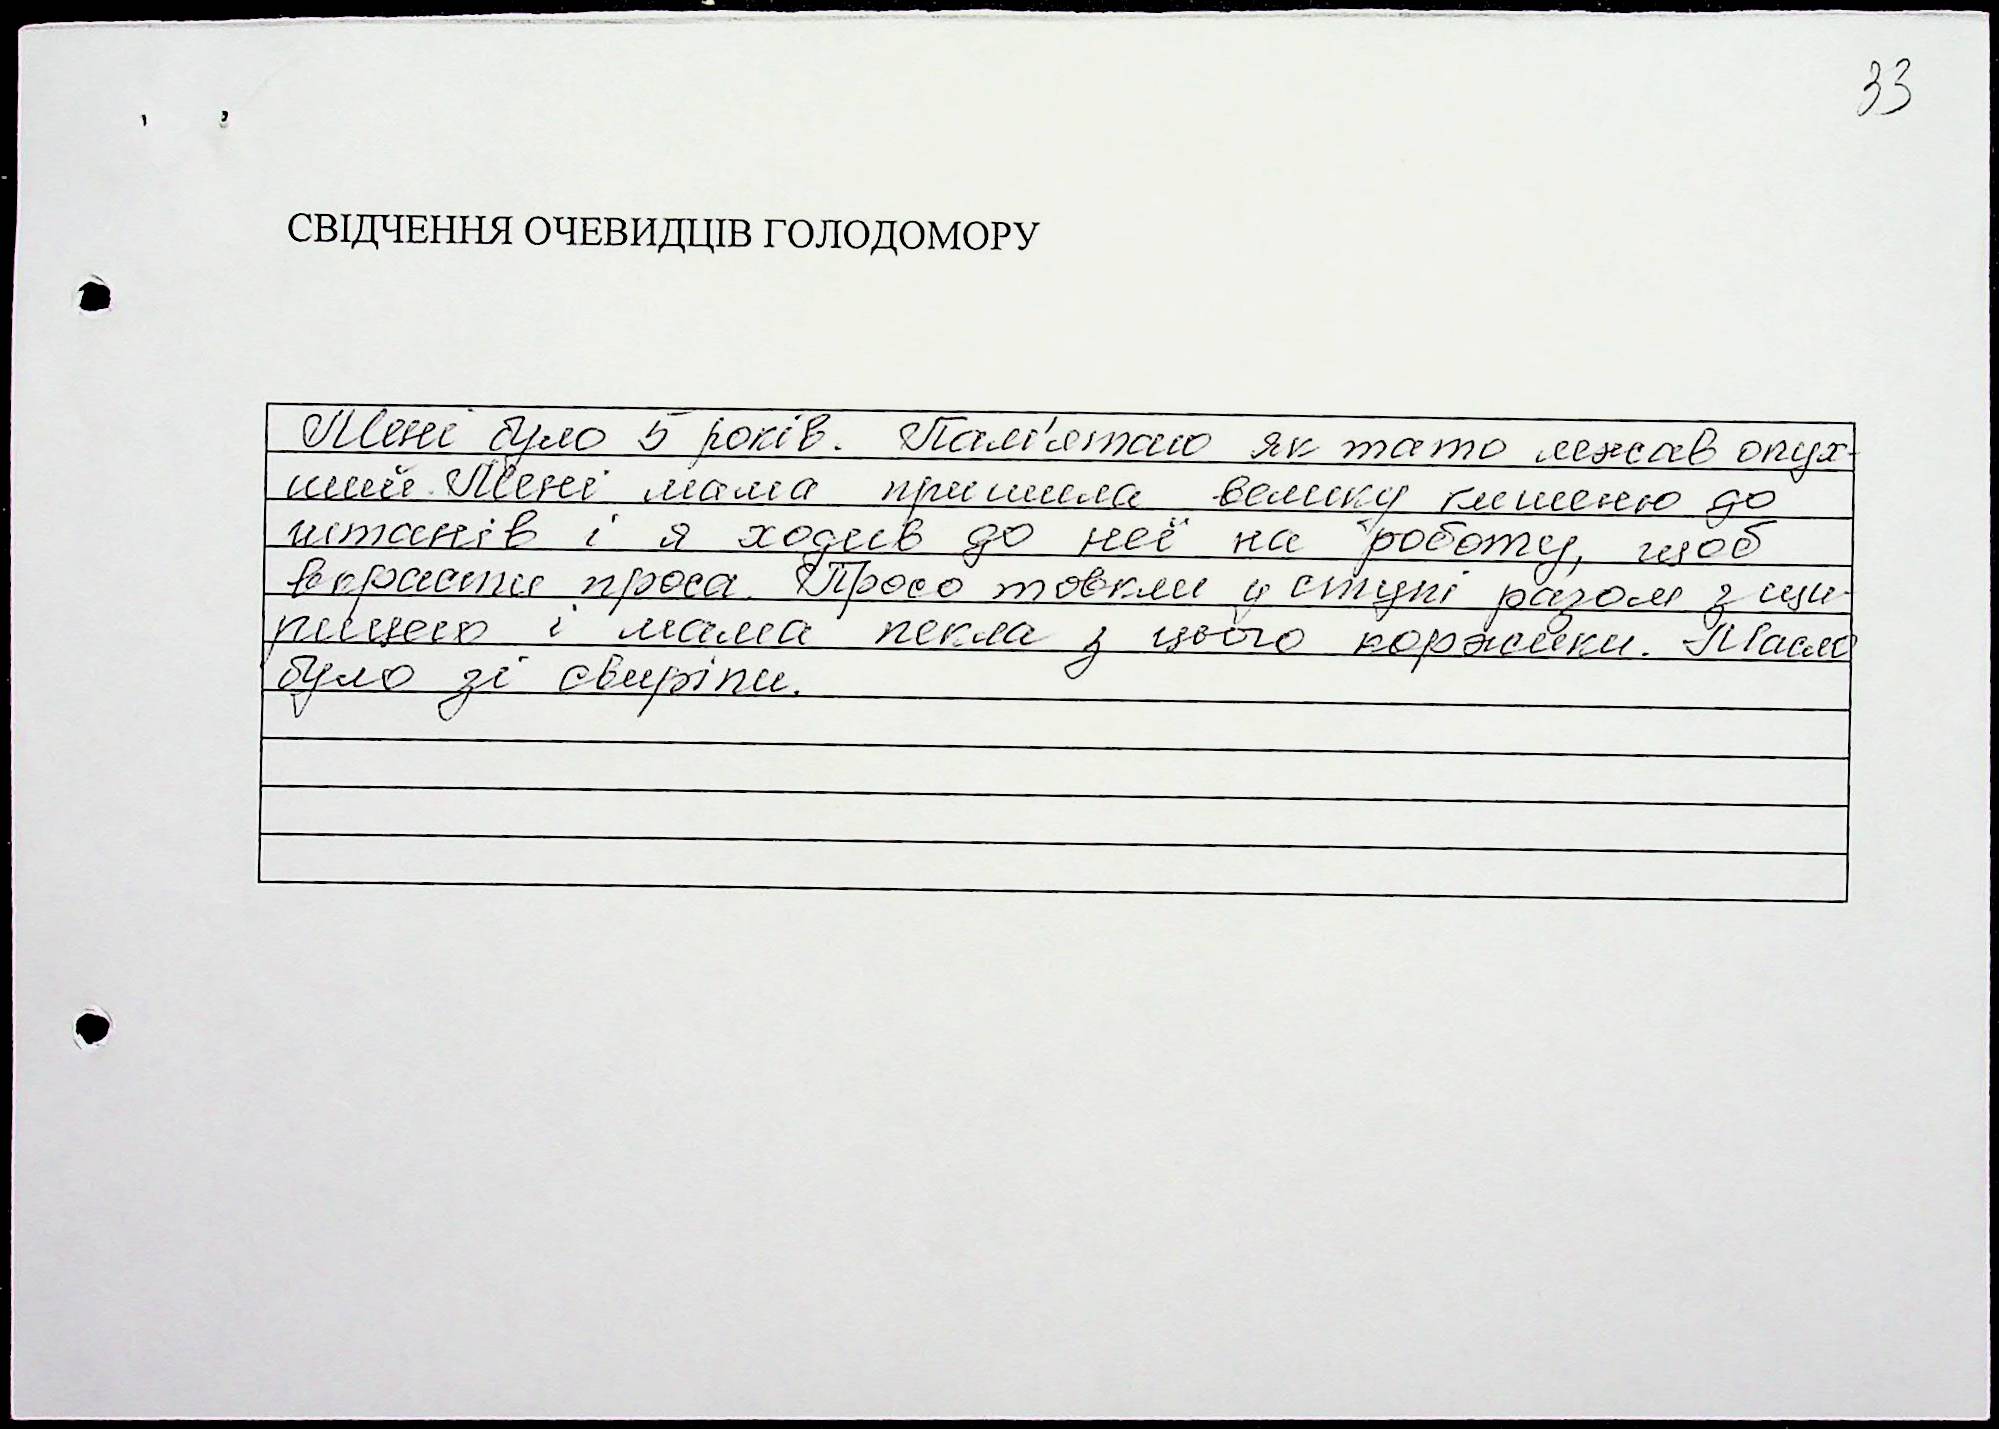 33
СВІДЧЕННЯ ОЧЕВИДЦІВ ГОЛОДОМОРУ
Мені було 5 років. Пам'ятаю як тато лежав опух-
ший. Мені мама пришила велику кишеню до
штанів і я ходив до неї на роботу, щоб
вкрасти проса. Просо товкли у ступі разом з щи-
рицею і мама пекла з цього коржики. Масло
було зі свиріпи.